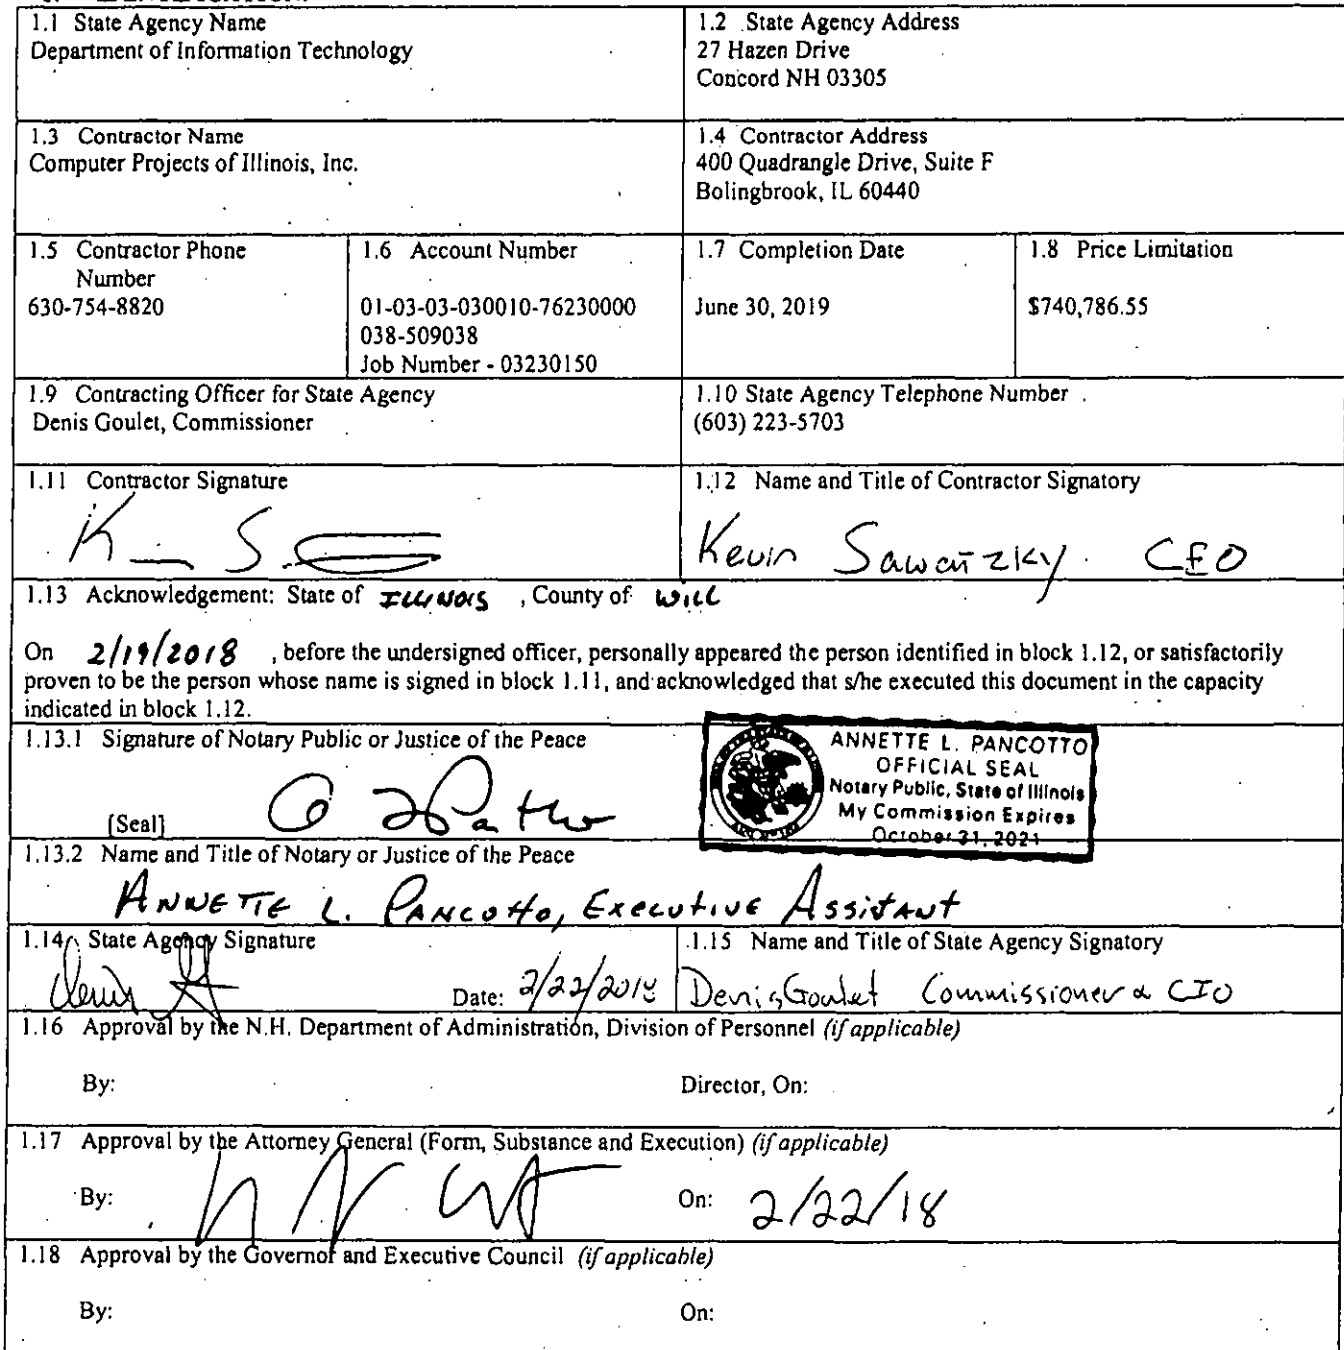 1.1 State Agency Name
Department of Information Technology
1.2 State Agency Address
27 Hazen Drive
Concord NH 03305
1.3 Contractor Name
Computer Projects of Illinois, Inc.
1.4 Contractor Address
400 Quadrangle Drive, Suite F
Bolingbrook, IL 60440
1.5 Contractor Phone
Number
630-754-8820
1.6 Account Number
01-03-03-030010-76230000
038-509038
Job Number - 03230150
1.7 Completion Date
June 30, 2019
1.8 Price Limitation
$740,786.55
1.9 Contracting Officer for State Agency
Denis Goulet, Commissioner
1.10 State Agency Telephone Number
(603) 223-5703
1.11 Contractor Signature
1.12 Name and Title of Contractor Signatory
Kevin Sawatzky. CEO
1.13 Acknowledgement: State of ILLINOIS , County of WILL
On 2/19/2018 , before the undersigned officer, personally appeared the person identified in block 1.12, or satisfactorily
proven to be the person whose name is signed in block 1.11, and acknowledged that s/he executed this document in the capacity
indicated in block 1.12.
1.13.1 Signature of Notary Public or Justice of the Peace
[Seal]
ANNETTE L. PANCOTTO
OFFICIAL SEAL
Notary Public, State of Illinois
My Commission Expires
October 31, 2021
1.13.2 Name and Title of Notary or Justice of the Peace
ANNETTE L. PANCOTTO, EXECUTIVE ASSISTANT
1.14 State Agency Signature
Date: 2/22/2018
1.15 Name and Title of State Agency Signatory
Denis Goulet Commissioner & CIO
1.16 Approval by the N.H. Department of Administration, Division of Personnel (if applicable)
By: Director, On:
1.17 Approval by the Attorney General (Form, Substance and Execution) (if applicable)
By: On: 2/22/18
1.18 Approval by the Governor and Executive Council (if applicable)
By: On: